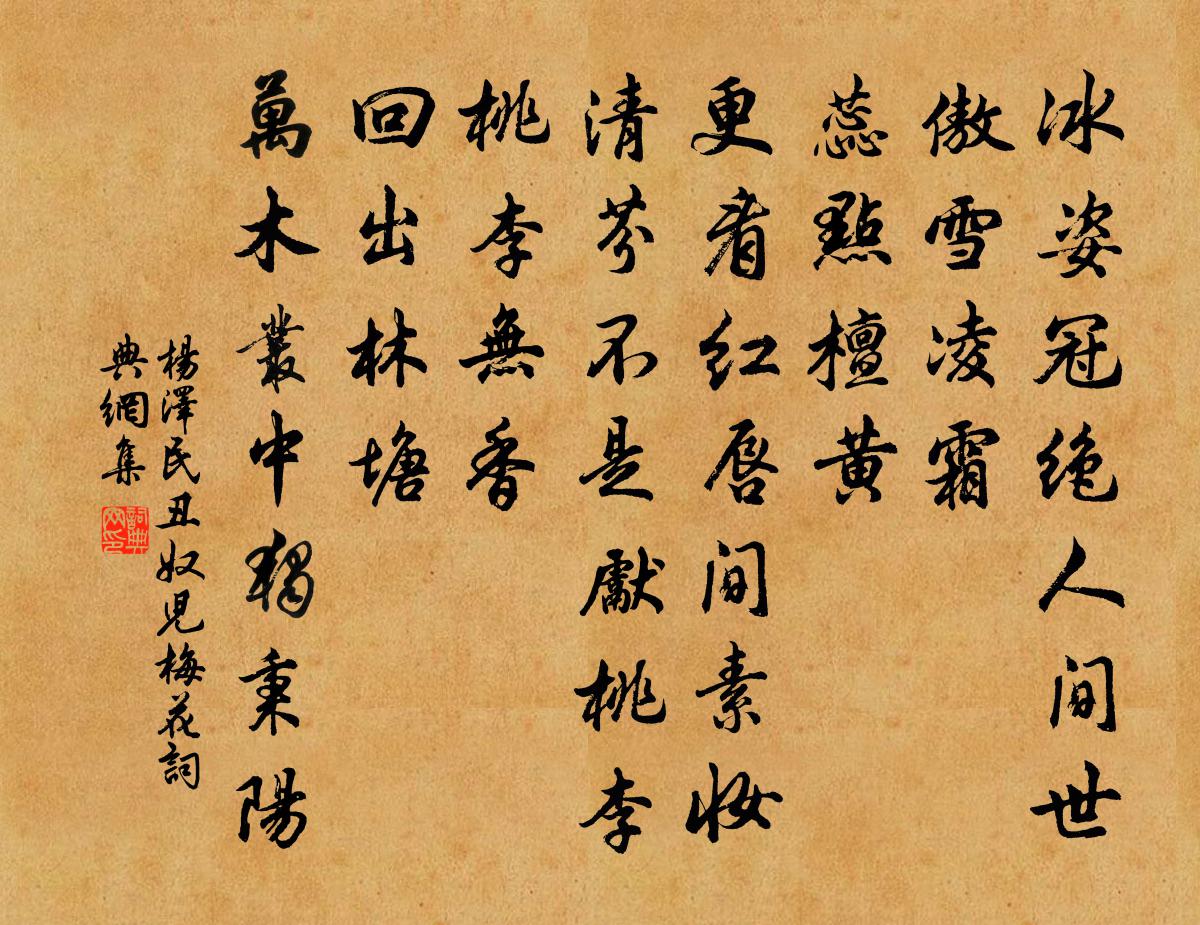 冰姿冠绝人间世
傲雪凌霜
蕊點檀黄
更看红唇间素妆
清芬不是獻桃李
桃李無香
回出林塘
萬木叢中獨秉陽
楊澤民丑奴兒梅花詞
典網集
詞典
网印